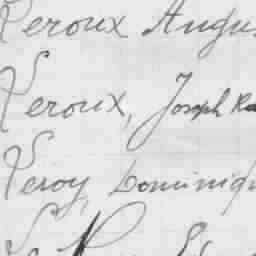 Leroux Augus
Leroux, Joseph
Leroy, Dominiq